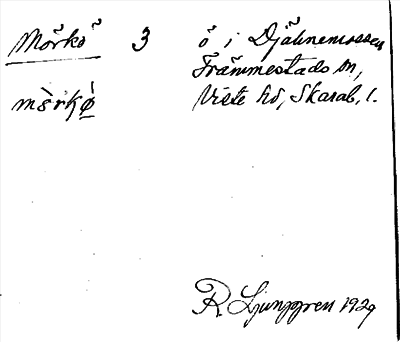 Mörkö 3 ö i Djäknemossen,
Främmestads sn,
mèrkǿ Viste hd, Skarab. l.
R. Ljunggren 1929